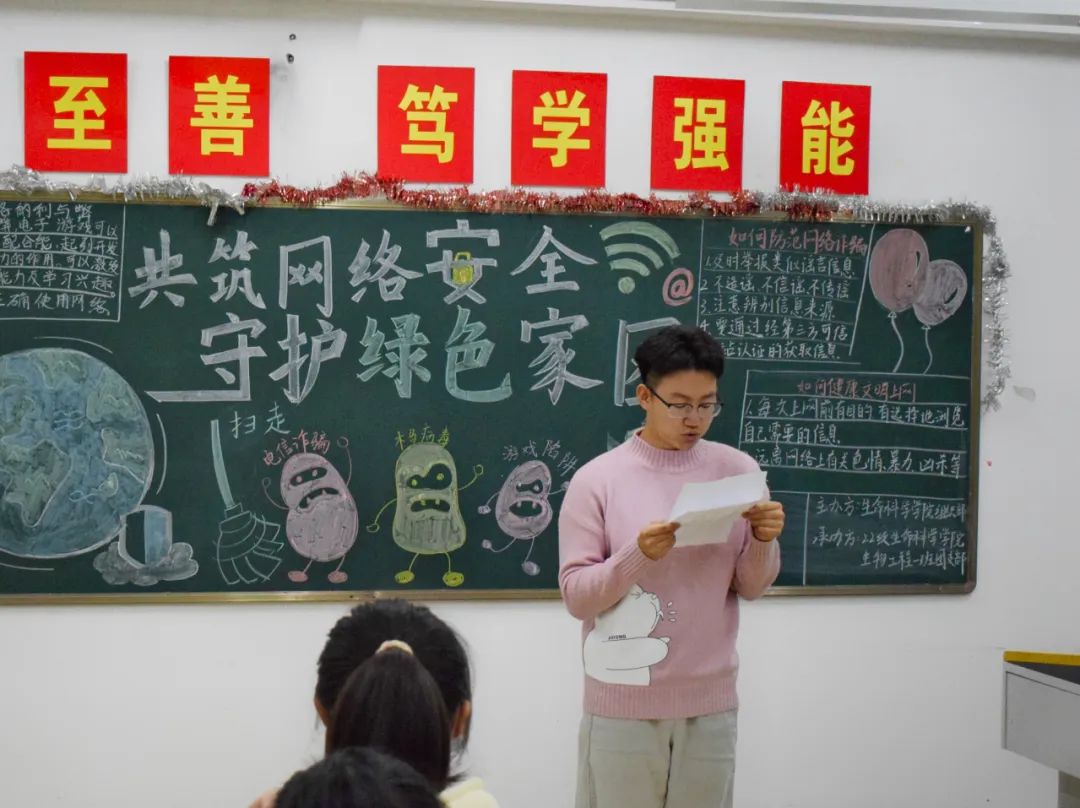 至善 笃学强能
电子游戏可以
的作用,可以激发
能力及学习兴趣
正确使用网络
共筑网络安全
守护绿色家
@
扫走
电信诈骗
木马病毒
游戏陷阱
如何防范网络诈骗
1.及时举报类似谣言信息
2.不造谣 不信谣 不传谣
3.注意辨别信息来源
通过经第三方可信
认证的获取信息
如何健康文明上网
1.每次上网前有目的 有选择地浏览
自己需要的信息
远离网络上有关色情、暴力、凶杀等
主办方:生命科学学院
承办方:22级生命科学学院
生物工程一班团支部